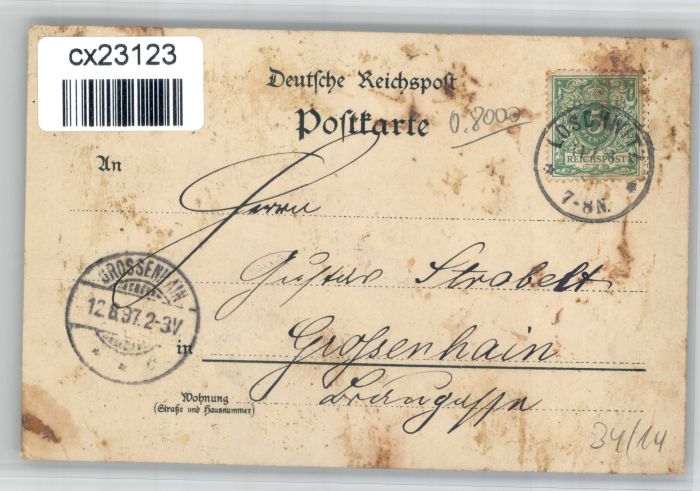 cx23123
Deutsche Reichspost
Postkarte
0.8000
5
REICHSPOST
LOSCHWITZ
7-8N.
An
Herrn
Gustav Strobelt
GROSSENHAIN
12.6.97.2-3V.
c
in Grossenhain
Braugasse
Wohnung
(Straße und Hausnummer)
34/14